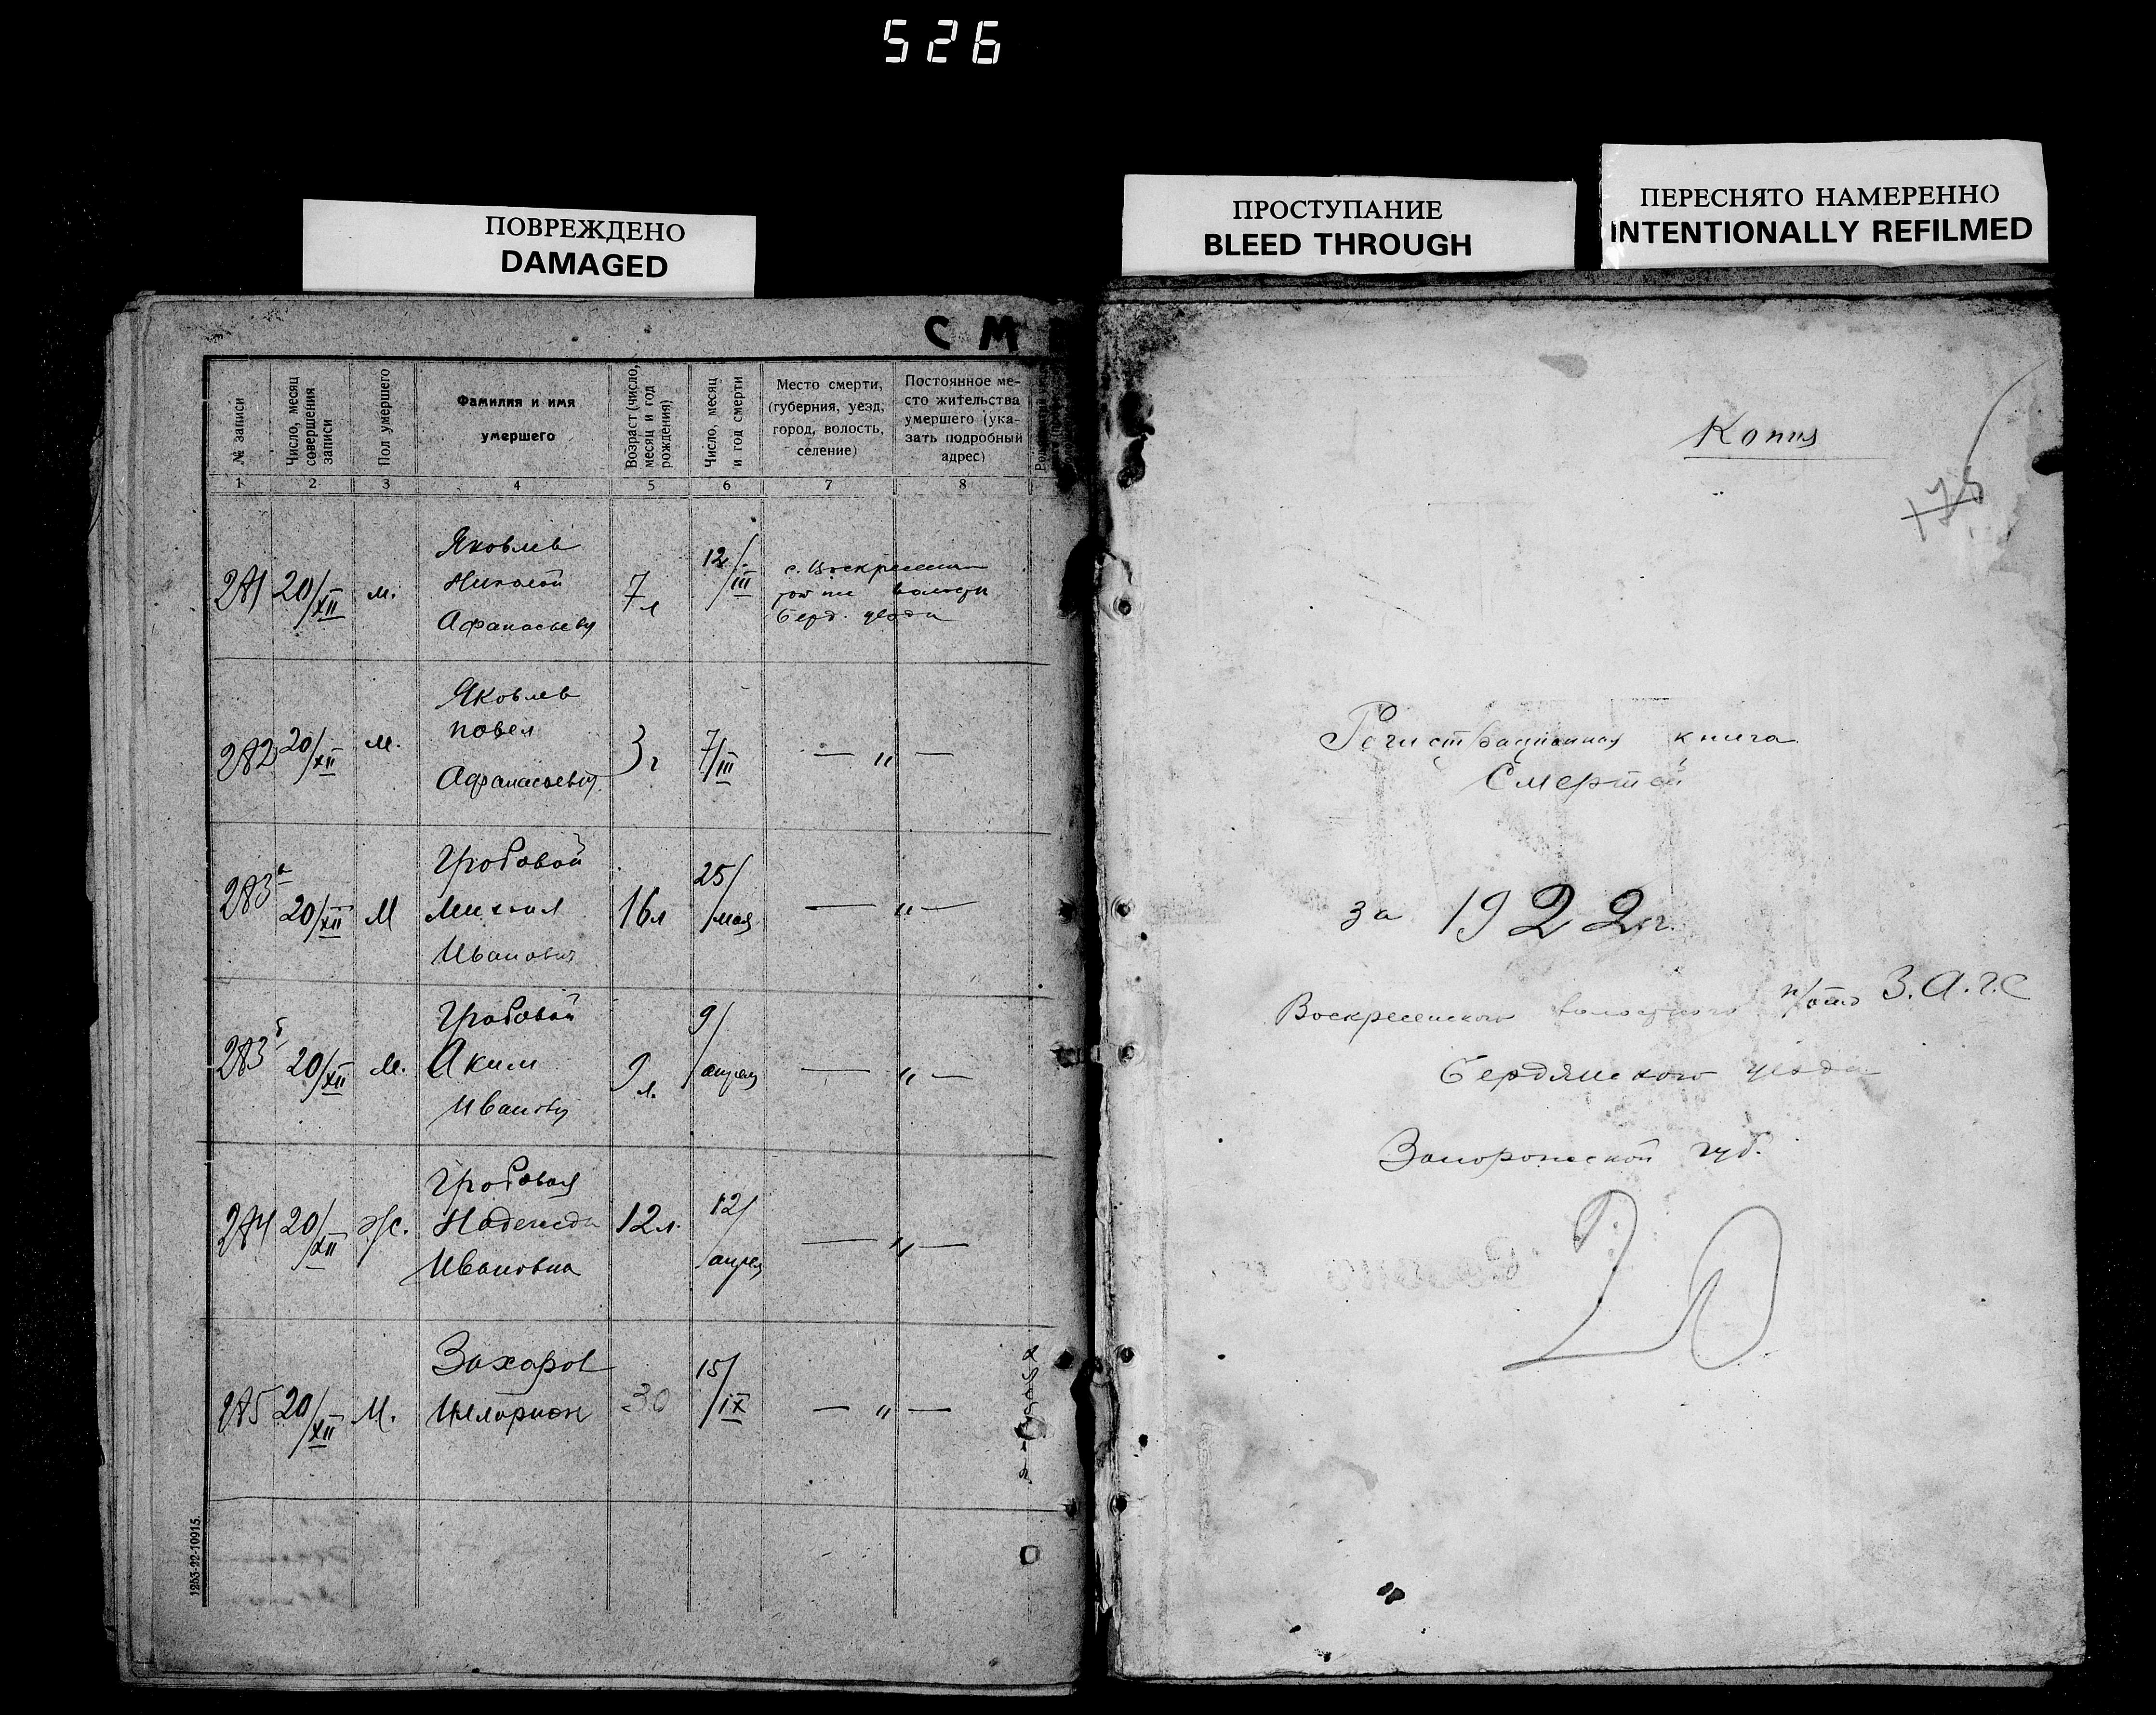 526
ПОВРЕЖДЕНО
DAMAGED
ПРОСТУПАНИЕ
BLEED THROUGH
ПЕРЕСНЯТО НАМЕРЕННО
INTENTIONALLY REFILMED
С М
№ записи
Число, месяц совершения записи
Пол умершего
Фамилия и имя умершего
Возраст (число, месяц и год рождения)
Число, месяц и год смерти
Место смерти, (губерния, уезд, город, волость, селение)
Постоянное место жительства умершего (указать подробный адрес)
1 2 3 4 5 6 7 8
Яковлев
281 20/XII м. Николай 7л 12/III с.
Афанасьевич
Берд. уезда
Яковлев
282 20/XII м. Павел 3г 7/III — „ —
Афанасьевич
Гробовой
283а 20/XII М Михаил 16л 25/мая — „ —
Иванович
Гробовой
283б 20/XII м. Аким 9л. 9/апреля — „ —
Иванович
Гробовая
284 20/XII ж. Надежда 12л. 12/апреля — „ —
Ивановна
Захаров
285 20/XII М. Илларион 30 15/IX — „ —
1263-22-10915.
Копия
175
Регистрационная книга
Смертей
за 1922 г.
Воскресенского волостного п/отд З.А.Г.С
Бердянского уезда
Запорожской губ.
20